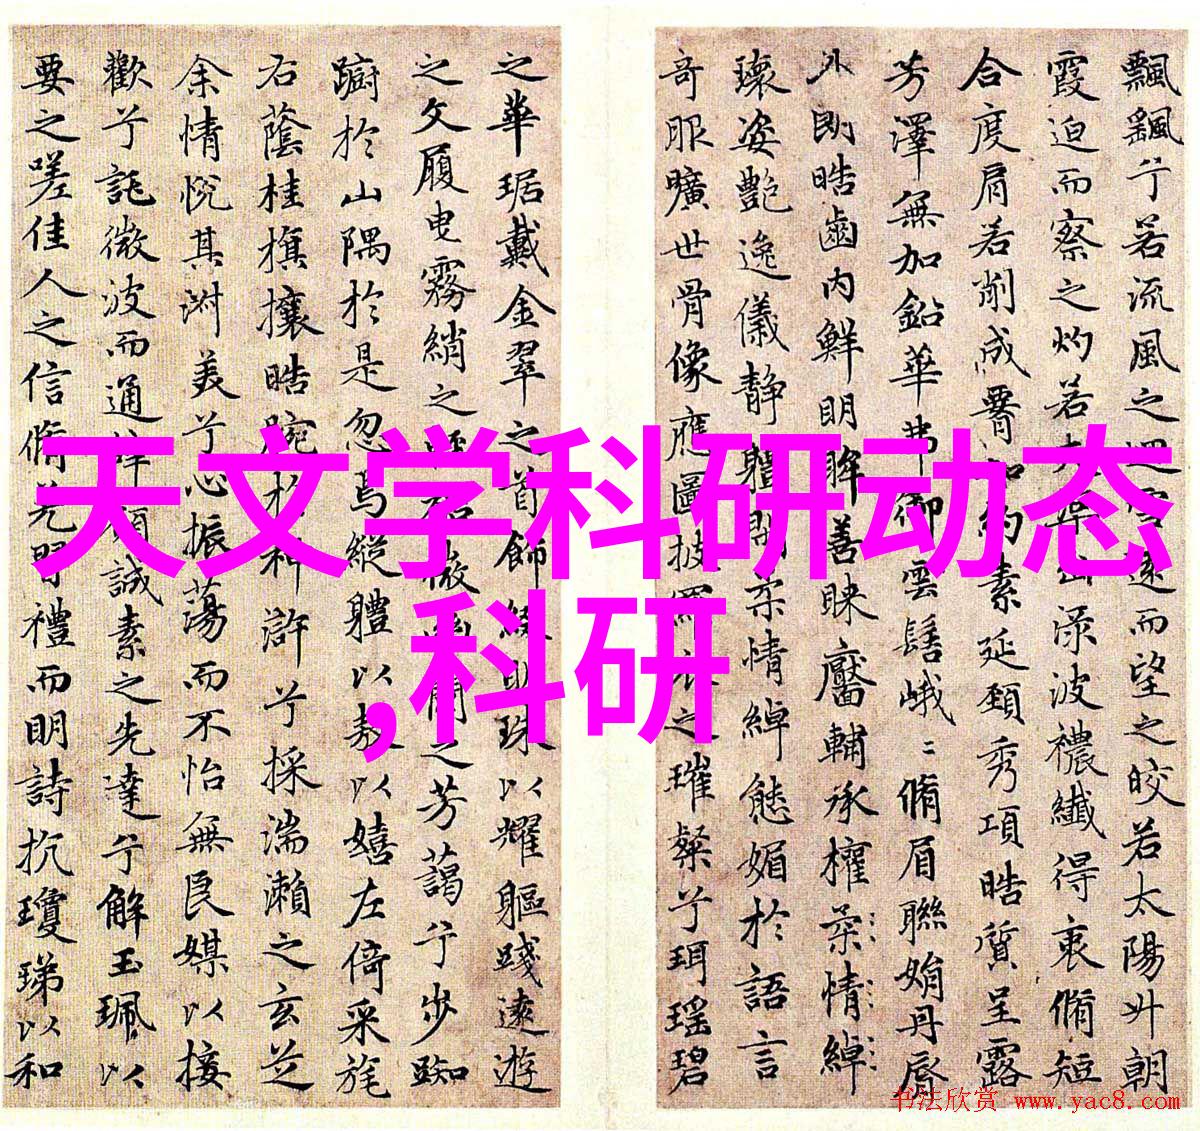 飄飖兮若流風之迴雪遠而望之皎若太陽升朝
霞迫而察之灼若芙蕖出淥波襛纖得衷脩短
合度肩若削成腰如約素延頸秀項皓質呈露
芳澤無加鉛華弗御雲髻峨〻脩眉聯娟丹脣
外朗皓齒内鮮明眸善睞靨輔承權柔情綽
瓌姿艷逸儀静體閑柔情綽態媚於語言
奇服曠世骨像應圖披羅衣之璀粲兮珥瑶碧
之華琚戴金翠之首飾綴明珠以耀軀踐遠遊
之文履曳霧綃之輕裾微幽蘭之芳藹兮步踟
躕於山隅於是忽焉縱體以敖以嬉左倚采旄
右蔭桂旗攘皓腕於神滸兮採湍瀨之玄芝
余情悅其淑美兮心振蕩而不怡無良媒以接
歡兮託微波而通辭願誠素之先達兮解玉珮以
要之嗟佳人之信脩羌習禮而明詩抗瓊珶以和
天文学科研动态
,科研
书法欣赏 www.yac8.com